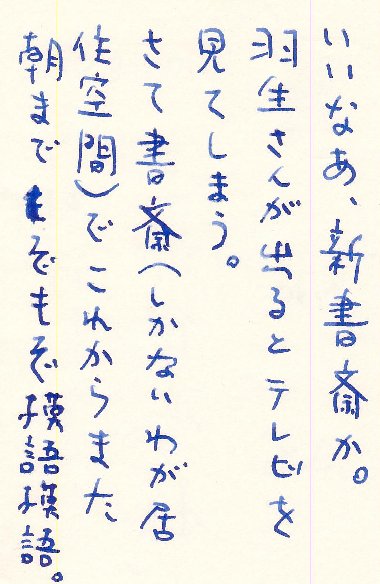 いいなあ、新書斎か。
羽生さんが出るとテレビを
見てしまう。
さて書斎(しかないわが居
住空間)でこれからまた
朝までぞもぞ模語模語。